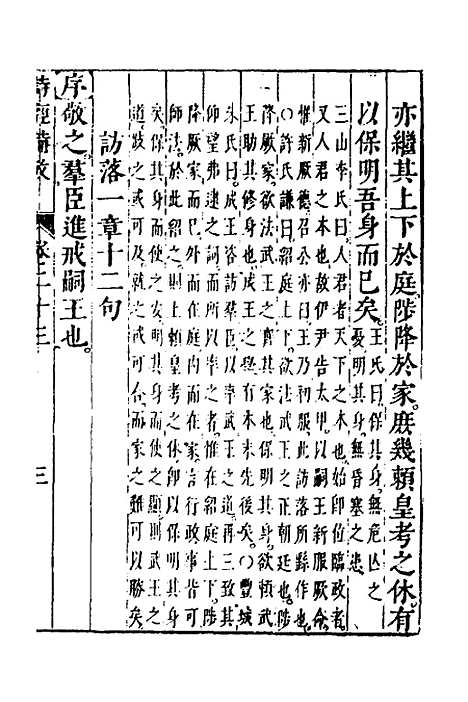 亦繼其上下於庭陟降於家庶幾賴皇考之休有
以保明吾身而已矣王氏曰保其身無危亾之
憂明其身無昏塞之患
三山李氏曰人君者天下之本也始卽位臨政者
又人君之本也故伊尹告太甲以嗣王新服厥命
惟新厥德召公亦曰王乃初服此訪落所繇作也
○許氏謙曰紹庭上下欲法武王之正朝廷也陟
降厥家欲法武王之齊其家也保明其身欲賴武
王助其修身也成王之學有本末先後矣○豐城
朱氏曰成王咨訪羣臣以率武王之道再三致其
仰望弗逮之詞而所以率之者惟在紹庭上下陟
降厥家而已外而在庭内而在家言行政事皆可
師法於此紹之則上賴皇考之休卽以保明其身
矣保其身而使之安明其身而使之顯則武王之
道或之或可升就之或可合而家之難可以勝矣
訪落一章十二句
序敬之羣臣進戒嗣王也
詩經備攷 卷二十三 三